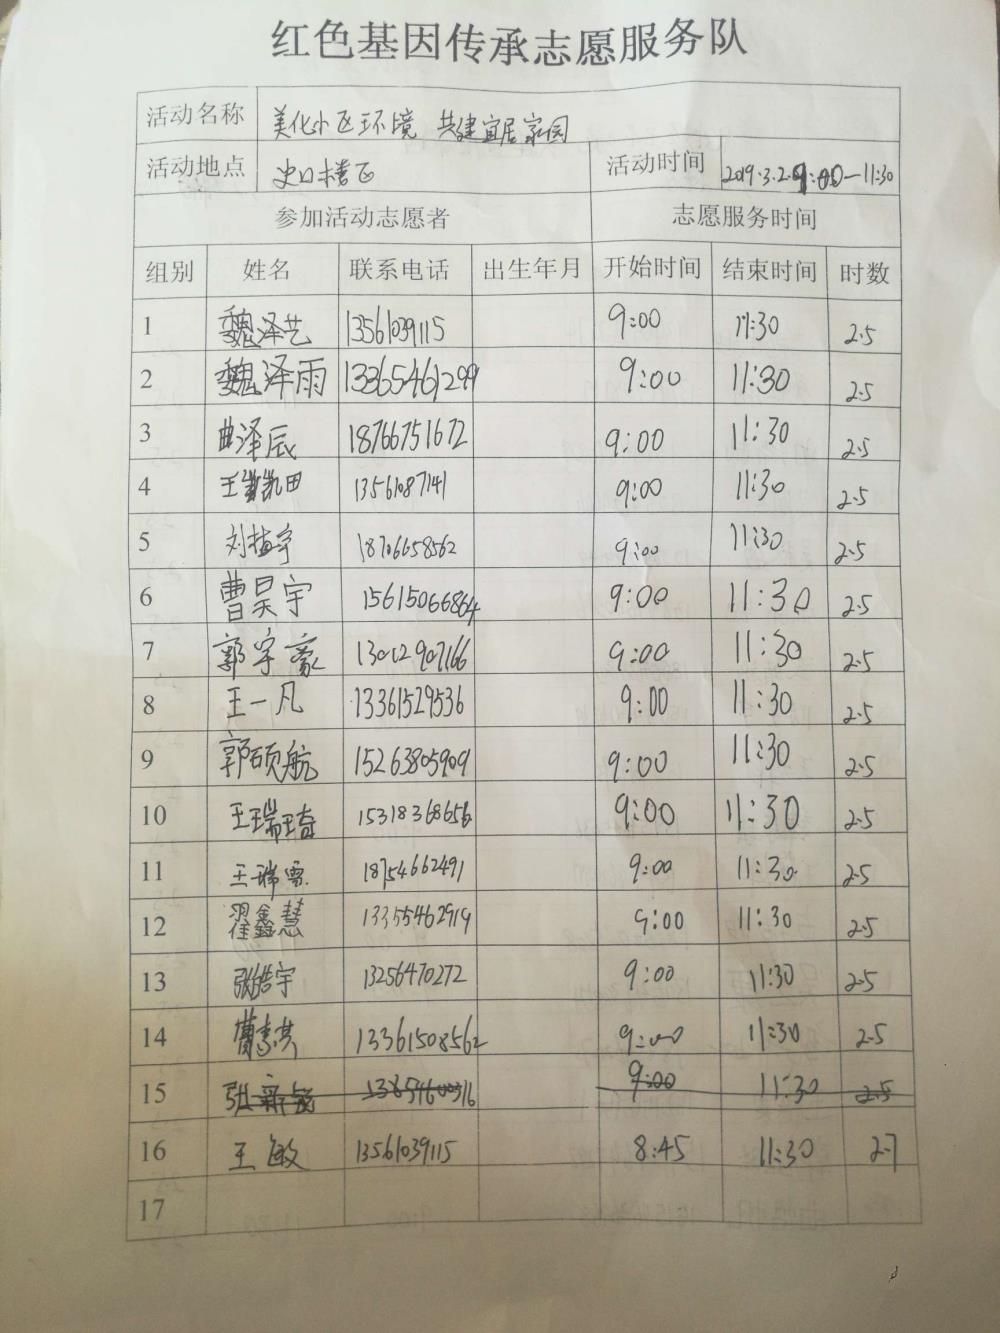 红色基因传承志愿服务队
活动名称 美化小区环境 共建宜居家园
活动地点 史口楼区 活动时间 2019.3.2 9:00—11:30
参加活动志愿者 志愿服务时间
组别 姓名 联系电话 出生年月 开始时间 结束时间 时数
1 魏泽艺 13561039115 9:00 11:30 2.5
2 魏泽雨 13365461299 9:00 11:30 2.5
3 曲泽辰 18766751672 9:00 11:30 2.5
4 13561087141 9:00 11:30 2.5
5 18706658562 9:00 11:30 2.5
6 曹昊宇 15615066864 9:00 11:30 2.5
7 郭宇豪 13012907166 9:00 11:30 2.5
8 王一凡 13361529536 9:00 11:30 2.5
9 郭硕航 15263805909 9:00 11:30 2.5
10 王瑞琦 15318368656 9:00 11:30 2.5
11 王瑞雪 18754662491 9:00 11:30 2.5
12 翟鑫慧 13355462919 9:00 11:30 2.5
13 张皓宇 13256470272 9:00 11:30 2.5
14 13361508562 9:00 11:30 2.5
15 9:00 11:30 2.5
16 王敏 13561039115 8:45 11:30 2.7
17